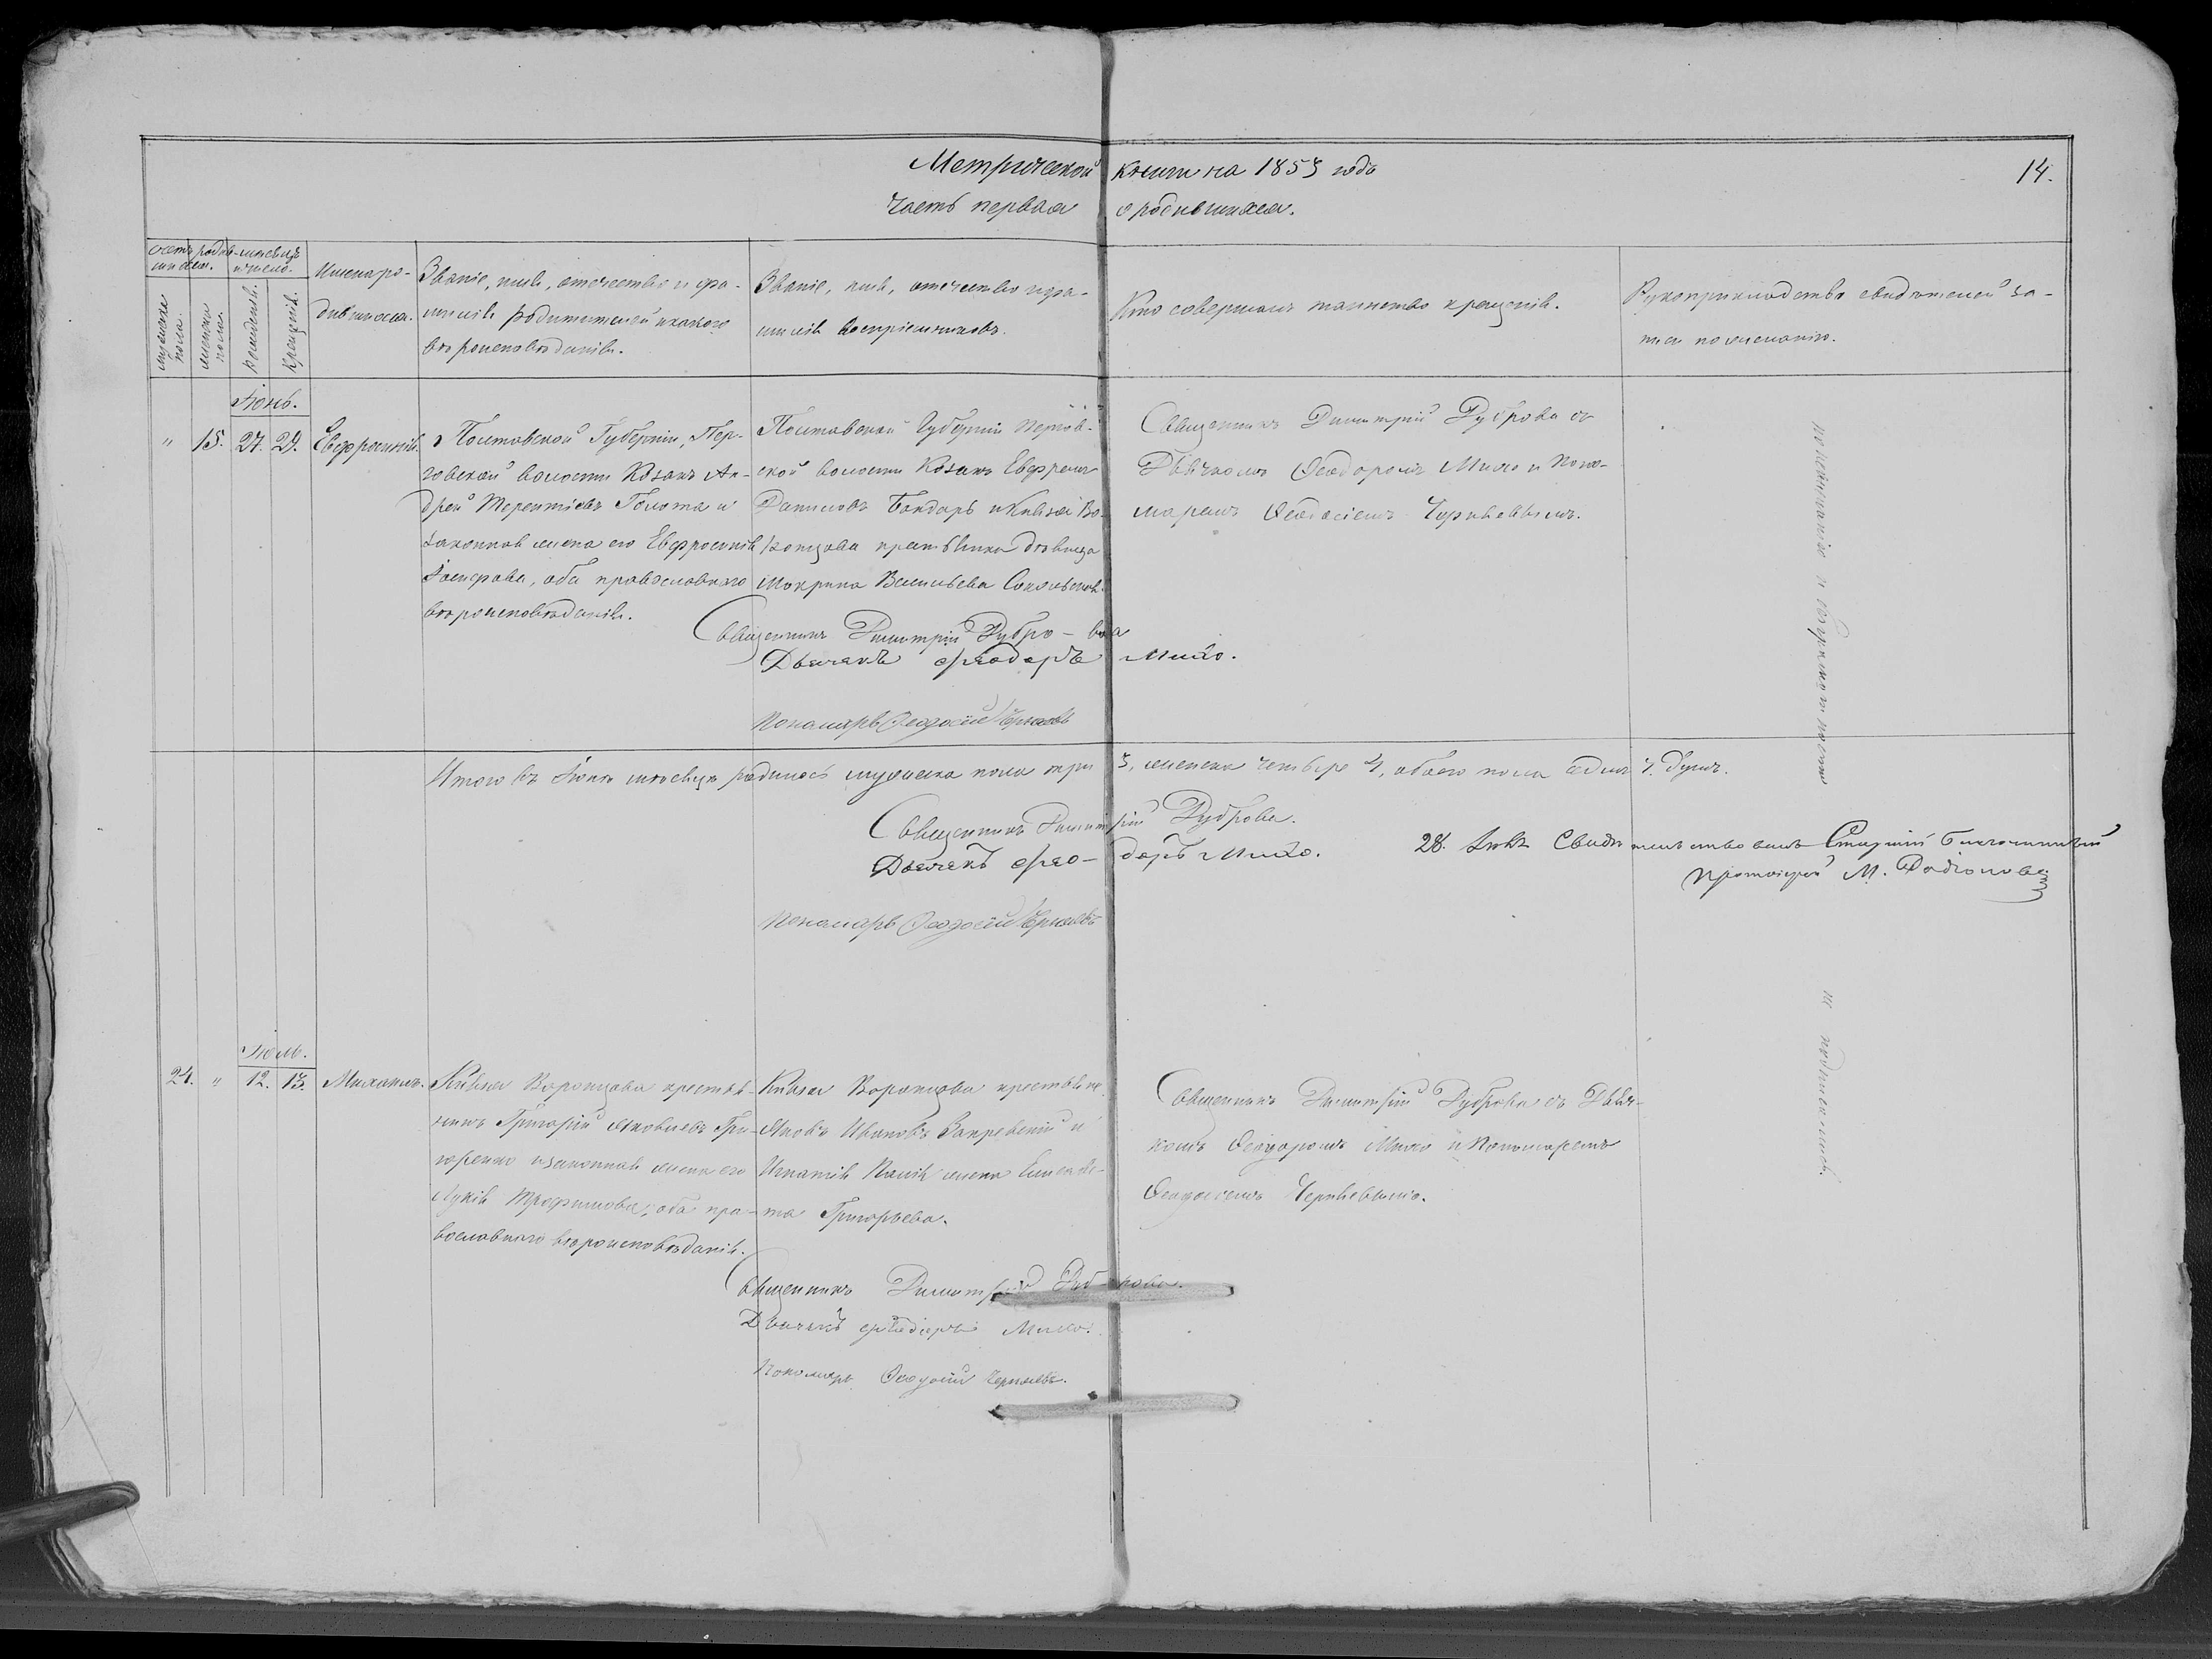 Метрической книги на 1853 годъ
14.
Часть первая о родившихся.
Счетъ родив-
шихся.
Мѣсяцъ
и число.
мужеска
пола.
женска
пола.
рожденія.
крещенія.
Имена ро-
дившихся.
Званіе, имя, отчество и фа-
милія родителей и какого
вѣроисповѣданія.
Званіе, имя, отчество и фа-
милія воспріемниковъ.
Кто совершалъ таинство крещенія.
Рукоприкладство свидѣтелей за-
писи по желанію.
Іюнь.
" 15. 27. 29. Евфросинія.
Полтавской Губерніи,
говской волости Козакъ Ан-
дрей Терентіевъ Голота и
законная жена его Евфросинія
Іосифова, оба православнаго
вѣроисповѣданія.
Полтавской Губерніи
ской волости Козакъ Евфремъ
Даниловъ Бондарь и Князя Во-
ронцова крестьянка дѣвица
Мокрина Васильева
Священникъ Димитрій Дуброва съ
Дьячкомъ Ѳеодоромъ Михо и Поно-
маремъ Ѳеодосіемъ Чернѣевымъ.
Священникъ Димитрій Дубро-ва
Дьячекъ Ѳеодоръ Михо.
Пономарь Ѳеодосій Чернѣевъ
Итого въ Іюнѣ мѣсяцѣ родилось мужеска пола три 3, женска четыре 4, обоего пола седмь 7. душъ.
Священникъ Димитрій Дуброва.
Дьячекъ Ѳео-доръ Михо.
Пономарь Ѳеодосій Чернѣевъ
28. Свидѣтельствовалъ Старшій Благочинный
Протоіерей М. Родіоновъ
Іюль.
24. " 12. 13. Михаилъ.
Князя Воронцова крестья-
нинъ Григорій Яковлевъ Гри-
горенко и законная жена его
Лукія Трофимова, оба пра-
вославнаго вѣроисповѣданія.
Князя Воронцова крестьяне
Яковъ Ивановъ Закревскій и
Игнатія жена Елисаве-
та Григорьева.
Священникъ Димитрій Дуброва съ Дьяч-
комъ Ѳеодоромъ Михо и Пономаремъ
Ѳеодосіемъ Чернѣевымъ.
Священникъ Димитрій Дуброва.
Дьячекъ Ѳеодоръ Михо.
Пономарь Ѳеодосій Чернѣевъ.
по незнанію и
не подписались.